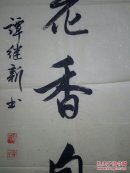 花香自
谭继新书